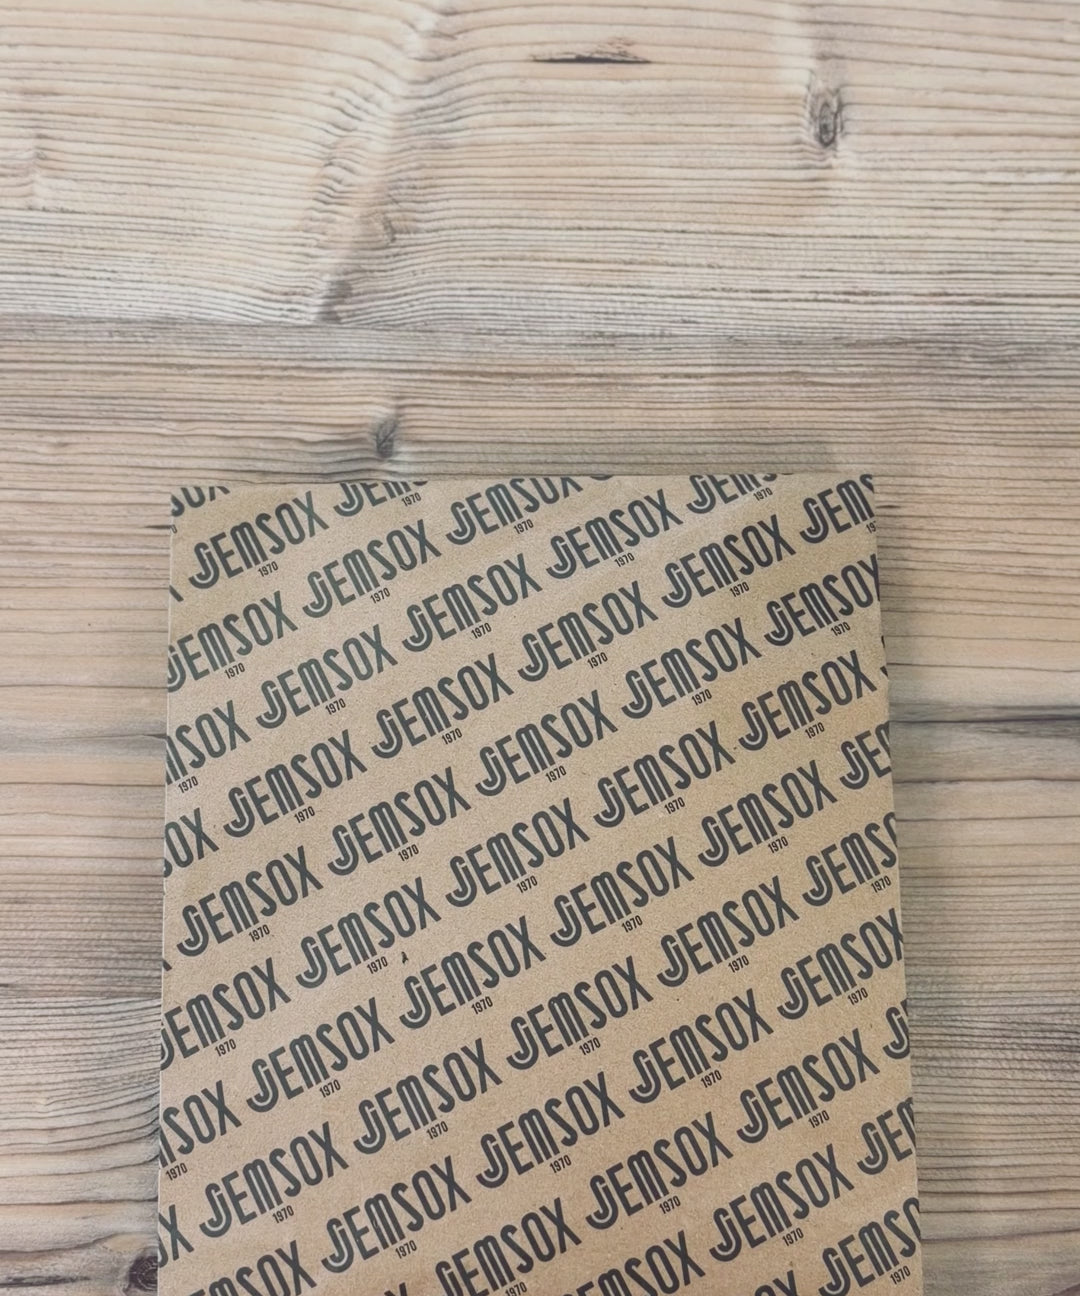 JEMSOX JEMSOX JEMSOX JEMSOX
1970 1970 1970 1970
JEMSOX JEMSOX JEMSOX JEMSOX
1970 1970 1970 1970
JEMSOX JEMSOX JEMSOX JEMSOX
1970 1970 1970 1970
JEMSOX JEMSOX JEMSOX JEMSOX
1970 1970 1970 1970
JEMSOX JEMSOX JEMSOX JEMSOX
1970 1970 1970 1970
JEMSOX JEMSOX JEMSOX JEMSOX
1970 1970 1970 1970
JEMSOX JEMSOX JEMSOX JEMSOX
1970 1970 1970 1970
JEMSOX JEMSOX JEMSOX JEMSOX
1970 1970 1970 1970
JEMSOX JEMSOX JEMSOX JEMSOX
1970 1970 1970 1970